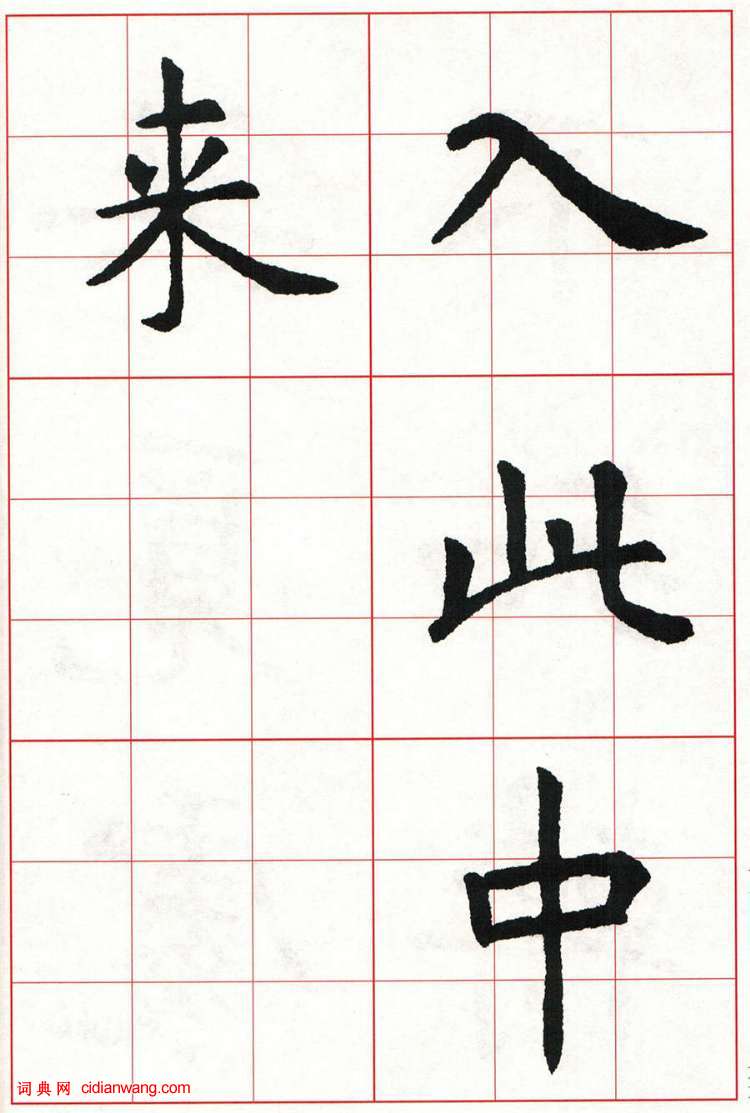 入此中
来
词典网 cidianwang.com